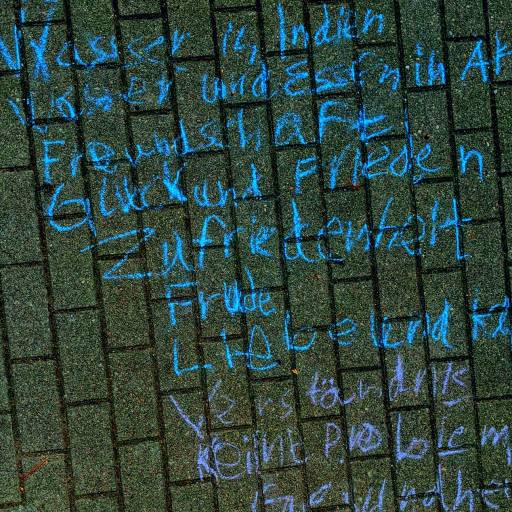 Wasser in Indien
Wasser und Essen in Af
Freundschaft
Glück und Frieden
Zufriedenheit
Frude
Liebe und
Verständnis
Keine Problem
Gesundhe